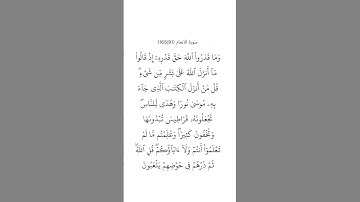 سورة الانعام (91)165
وَمَا قَدَرُوا۟ ٱللَّهَ حَقَّ قَدْرِهِۦٓ إِذْ قَالُوا۟
مَآ أَنزَلَ ٱللَّهُ عَلَىٰ بَشَرٍ مِّن شَىْءٍۗ
قُلْ مَنْ أَنزَلَ ٱلْكِتَـٰبَ ٱلَّذِى جَآءَ
بِهِۦ مُوسَىٰ نُورًا وَهُدًى لِّلنَّاسِۖ
تَجْعَلُونَهُۥ قَرَاطِيسَ تُبْدُونَهَا
وَتُخْفُونَ كَثِيرًاۖ وَعُلِّمْتُم مَّا لَمْ
تَعْلَمُوٓا۟ أَنتُمْ وَلَآ ءَابَآؤُكُمْۖ قُلِ ٱللَّهُۖ
ثُمَّ ذَرْهُمْ فِى خَوْضِهِمْ يَلْعَبُونَ